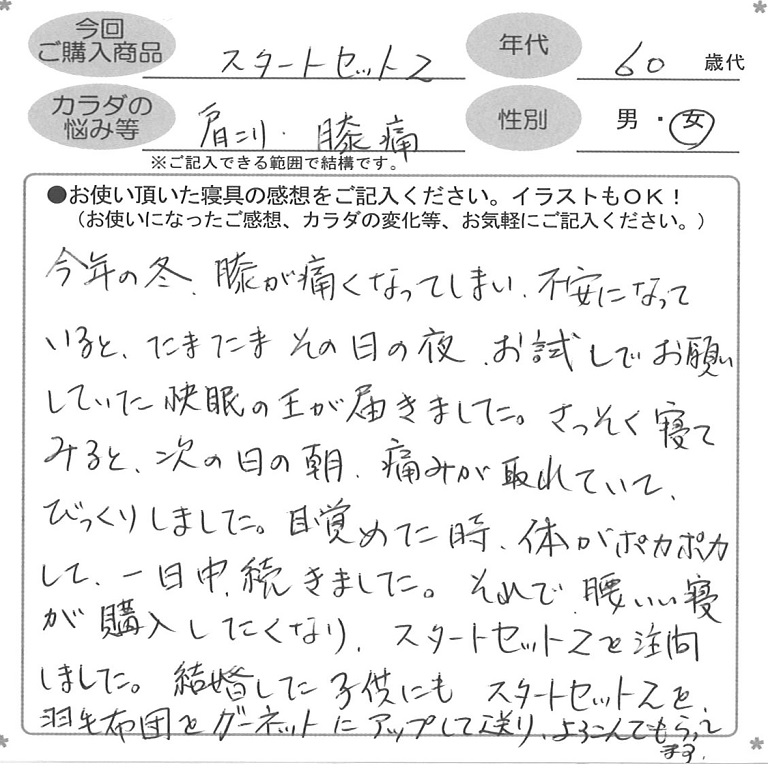 今回
ご購入商品
スタートセットZ
年代
60 歳代
カラダの
悩み等
肩コリ・膝痛
性別
男・女
※ご記入できる範囲で結構です。
●お使い頂いた寝具の感想をご記入ください。イラストもOK!
(お使いになったご感想、カラダの変化等、お気軽にご記入ください。)
今年の冬、膝が痛くなってしまい、不安になって
いると、たまたまその日の夜、お試しでお願い
していた快眠の王が届きました。さっそく寝て
みると、次の日の朝、痛みが取れていて、
びっくりしました。目覚めた時、体がポカポカ
して、一日中、続きました。それで、腰いい寝
が購入したくなり、スタートセットZを注問
しました。結婚した子供にもスタートセットZを、
羽毛布団をガーネットにアップして送り、よろこんでもらって
ます。